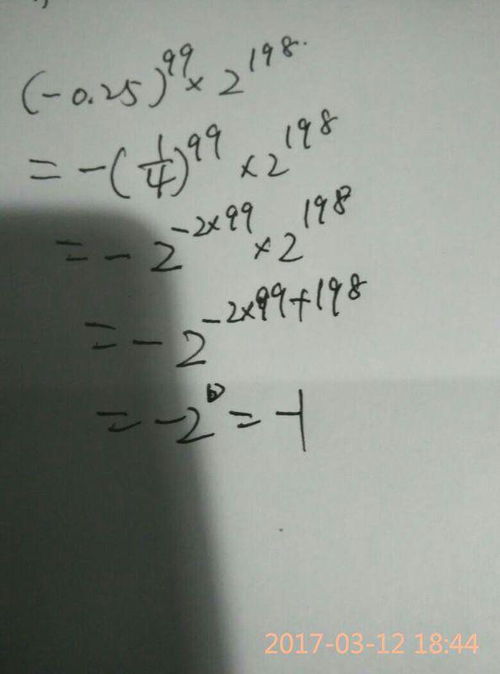 (-0.25)^99 × 2^198
= -(1/4)^99 × 2^198
= -2^(-2×99) × 2^198
= -2^(-2×99+198)
= -2^0 = -1
2017-03-12 18:44